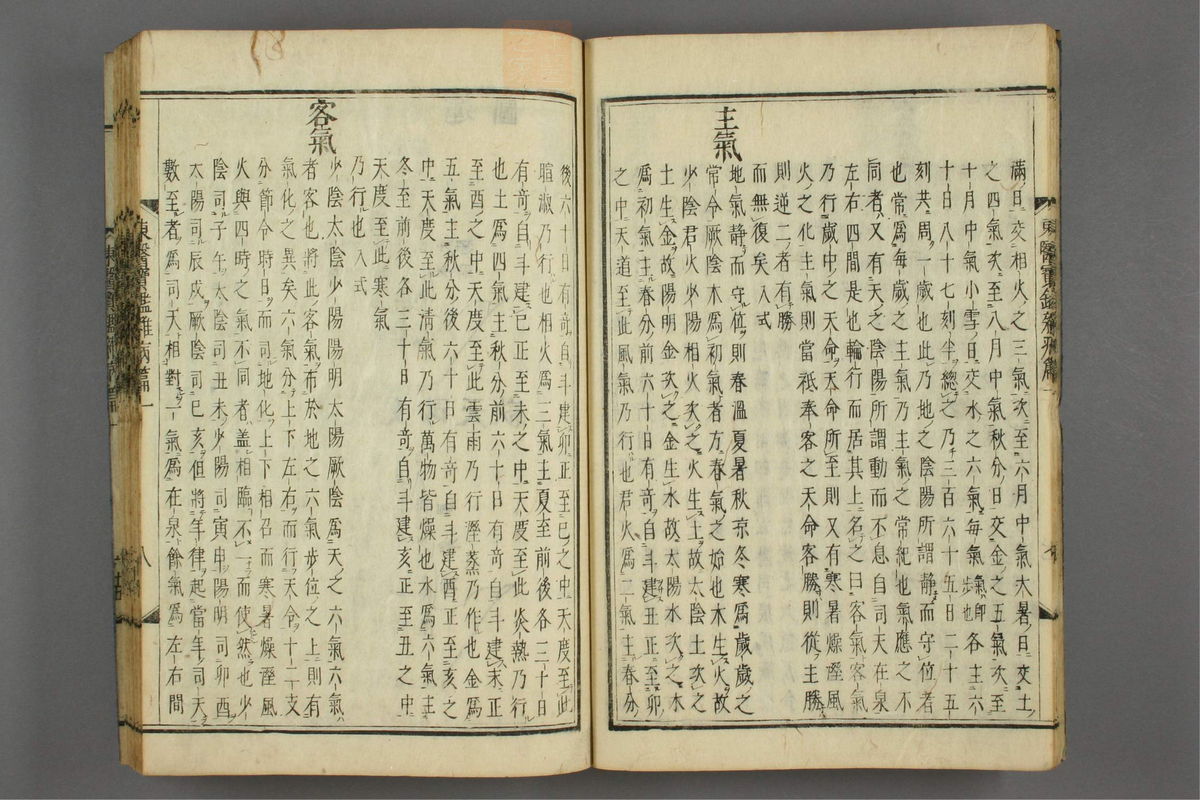 滿日交相火之三氣次至六月中氣大暑日交土
之四氣次至八月中氣秋分日交金之五氣次至
十月中氣小雪日交水之六氣每氣氣卽步也各主六
十日八十七刻半總之乃三百六十五日二十五
刻共周一歲也此乃地之陰陽所謂靜而守位者
也常爲每歲之主氣乃主氣之常紀也氣應之不
同者又有天之陰陽所謂動而不息自司天在泉
左右四間是也輪行而居其上名之曰客氣客氣
乃行歲中之天命天命所至則又有寒暑燥濕風
火之化主氣則當祗奉客之天命客勝則從主勝
則逆二者有勝
而無復矣入式
主氣
地氣靜而守位則春溫夏暑秋凉冬寒爲歲歲之
常令厥陰木爲初氣者方春氣之始也木生火故
少陰君火少陽相火次之火生土故太陰土次之
土生金故陽明金次之金生水故太陽水次之木
爲初氣主春分前六十日有奇自斗建丑正至卯
之中天道至此風氣乃行也君火爲二氣主春分
東醫寶鑑雜病篇一
後六十日有奇自斗建卯正至巳之中天度至此
暄淑乃行也相火爲三氣主夏至前後各三十日
有奇自斗建巳正至未之中天度至此炎熱乃行
也土爲四氣主秋分前六十日有奇自斗建未正
至酉之中天度至此雲雨乃行濕蒸乃作也金爲
五氣主秋分後六十日有奇自斗建酉正至亥之
中天度至此清氣乃行萬物皆燥也水爲六氣主
冬至前後各三十日有奇自斗建亥正至丑之中
天度至此寒氣
乃行也入式
客氣
少陰太陰少陽陽明太陽厥陰爲天之六氣六氣
者客也將此客氣布於地之六氣步位之上則有
氣化之異矣六氣分上下左右而行天令十二支
分節令時日而司地化上下相召而寒暑燥濕風
火與四時之氣不同者盖相臨不一而使然也少
陰司子午太陰司丑未少陽司寅申陽明司卯酉
太陽司辰戌厥陰司巳亥但將年律起當年司天
數至者爲司天相對一氣爲在泉餘氣爲左右間
東醫寶鑑雜病篇一
八